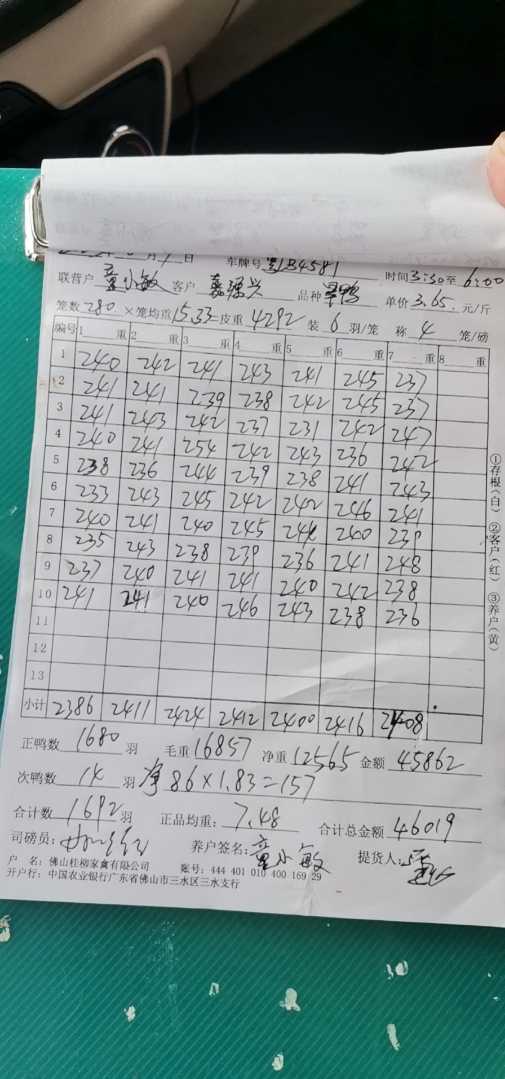 月 1 日 车牌号 B4581
联营户 童小敏 客户 嘉源兴 品种 鸭 单价 3.65 元/斤 时间 3:30 至 6:00
笼数 280 ×笼均重 15.33 =皮重 4292 装 6 羽/笼 称 4 笼/磅
编号 1 重 2 重 3 重 4 重 5 重 6 重 7 重 8 重
1 240 242 241 243 241 245 237
2 241 241 239 238 242 245 237
3 241 243 242 237 231 242 247
4 240 241 254 242 243 236 242
5 238 236 244 239 238 241 243
6 233 243 245 242 242 246 241
7 240 241 240 245 244 240 239
8 235 243 238 239 236 241 248
9 237 240 241 241 240 242 238
10 241 241 240 246 243 238 236
11
12
13
小计 2386 2411 2424 2412 2400 2416 2408
正鸭数 1680 羽 毛重 16857 净重 12565 金额 45862
次鸭数 14 羽 净 86×1.83=157
合计数 1692 羽 正品均重: 7.48 合计总金额 46019
司磅员: 养户签名: 童小敏 提货人:
户 名: 佛山桂柳家禽有限公司 账号: 444 401 010 400 169 29
开户行: 中国农业银行广东省佛山市三水区三水支行
①存根(白) ②客户(红) ③养户(黄)